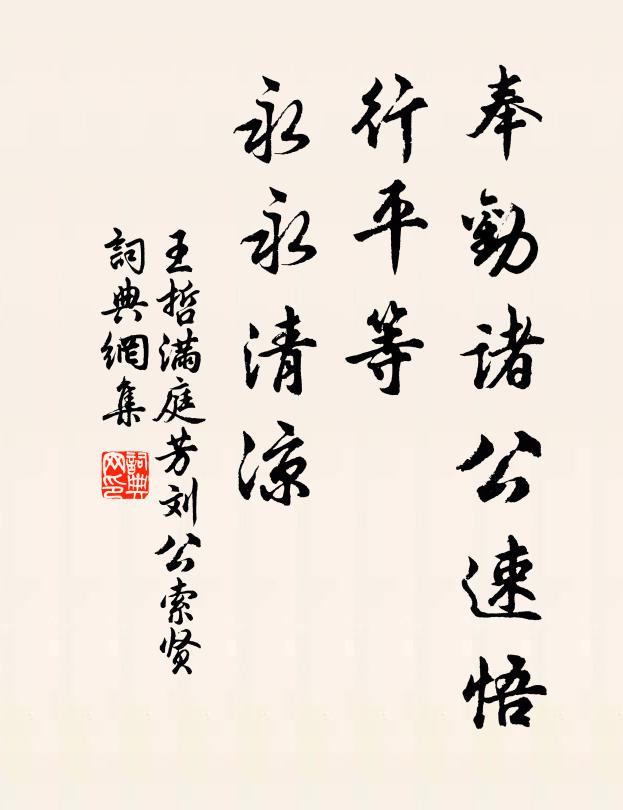 奉勸諸公速悟
行平等
永永清涼
王哲满庭芳刘公索贤
詞典網集
詞典网印